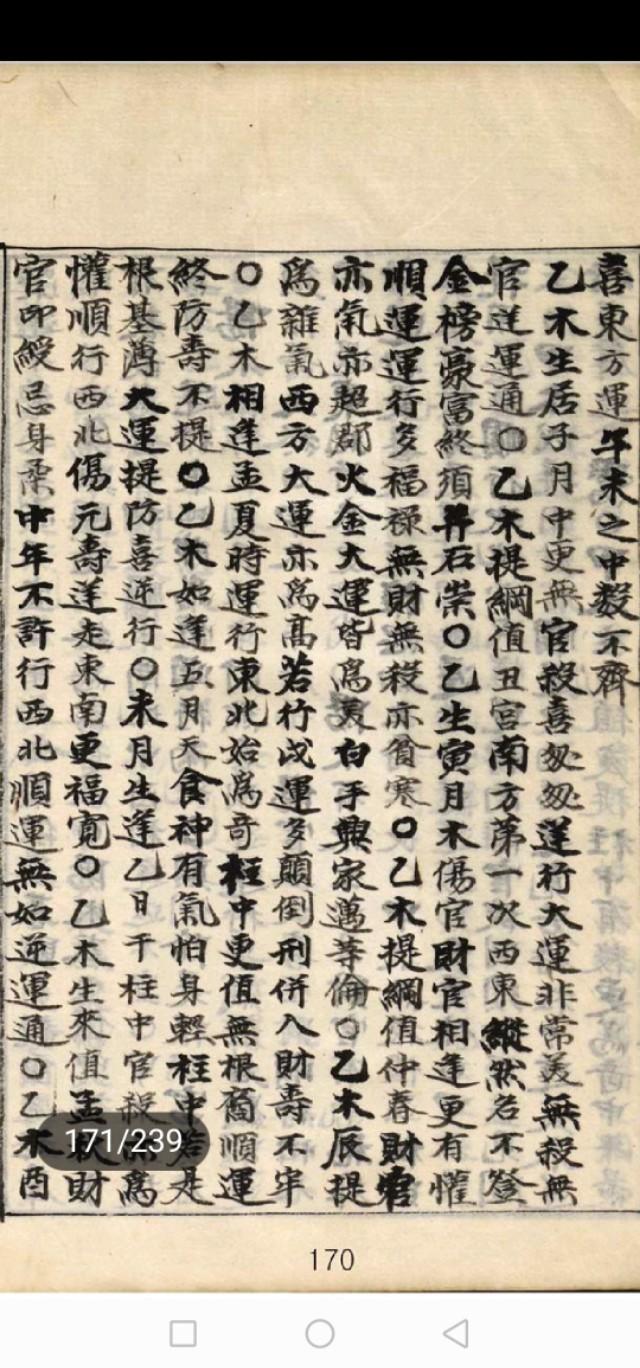 喜東方運午未之中数不齊
乙木生居子月中更無官殺喜匆匆逆行大運非常美無殺無
官逆運通○乙木提綱值丑宮南方第一次西東縱然名不登
金榜豪富終須昇石崇○乙生寅月木傷官財官相逢更有懽
順運運行多福祿無財無殺亦貧寒○乙木提綱值仲春財官
亦氣亦超郡火金大運皆為美白手興家邁等倫○乙木辰提
為雜氣西方大運亦為高若行戌運多顛倒刑併入財壽不牢
○乙木相逢孟夏時運行東北始為奇柱中更值無根裔順運
終防壽不提○乙木如逢五月天食神有氣怕身輕柱中若是
根基薄大運提防喜逆行○未月生逢乙日干柱中官殺為
懽順行西北傷元壽逆走東南更福寬○乙木生來值孟秋財
官印綬忌身柔中年不許行西北順運無如逆運通○乙木酉
171/239
170